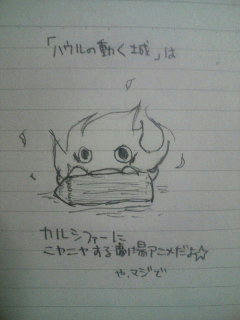 「ハウルの動く城」は
カルシファーに
ニヤニヤする劇場アニメだよ☆
や、マジで